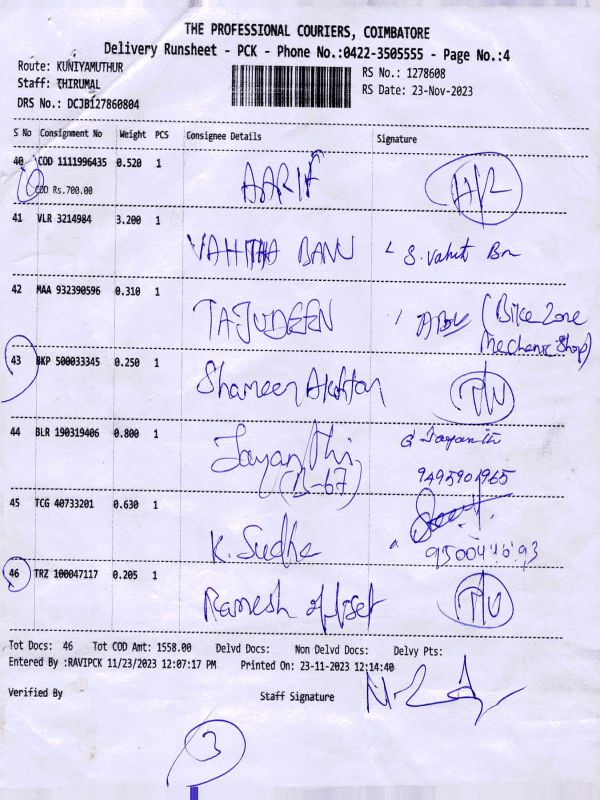 THE PROFESSIONAL COURIERS, COIMBATORE
Delivery Runsheet - PCK - Phone No.:0422-3505555 - Page No.:4
Route: KUNIYAMUTHUR
RS No.: 1278608
Staff: THIRUMAL
RS Date: 23-Nov-2023
DRS No.: DCJB127860804
S No Consignment No Weight PCS Consignee Details Signature
40 COD 1111996435 0.520 1 AARIF
COD Rs.700.00
41 VLR 3214984 3.200 1 VAHITHA BANU S. Vahit Bn
42 MAA 932390596 0.310 1 TAJUDEEN (Bike Zone
Mechanic Shop)
43 BKP 500033345 0.250 1 Shameen Akhtar
44 BLR 190319406 0.800 1 Jayanthi G Jayanthi
(B-67) 9495901965
45 TCG 40733201 0.630 1 K. Sudha
46 TRZ 100047117 0.205 1 Ramesh offset
Tot Docs: 46 Tot COD Amt: 1558.00 Delvd Docs: Non Delvd Docs: Delvy Pts:
Entered By :RAVIPCK 11/23/2023 12:07:17 PM Printed On: 23-11-2023 12:14:40
Verified By Staff Signature
3